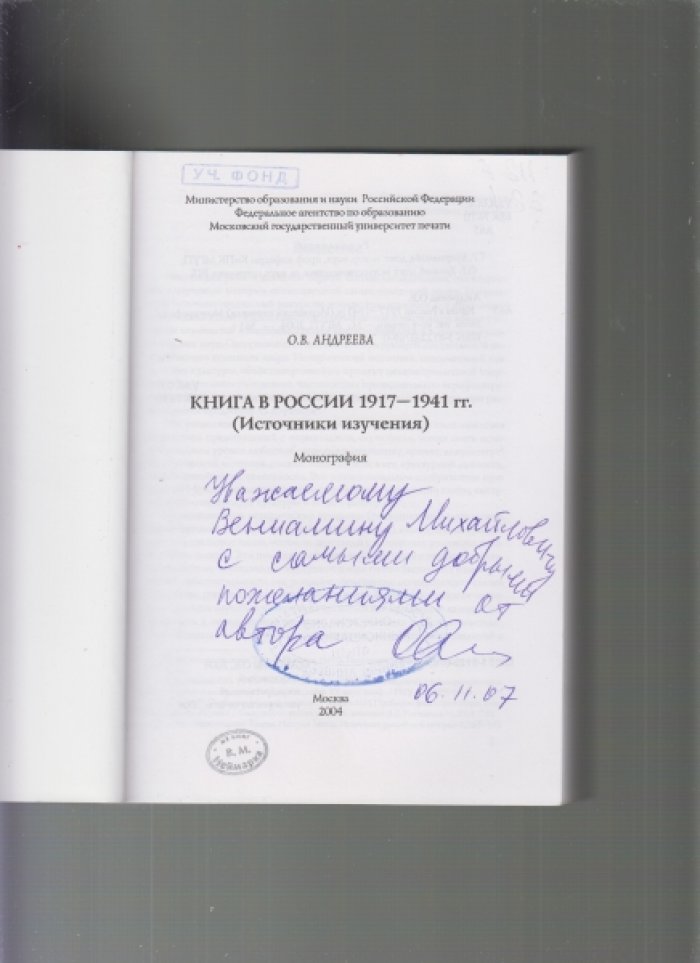 УЧ. ФОНД
Министерство образования и науки Российской Федерации
Федеральное агентство по образованию
Московский государственный университет печати
О.В. АНДРЕЕВА
КНИГА В РОССИИ 1917—1941 гг.
(Источники изучения)
Монография
Уважаемому
Вениамину Михайловичу
с самыми добрыми
пожеланиями от
автора
06.11.07
Москва
2004
ИЗ КНИГ
В. М.
Неймарка